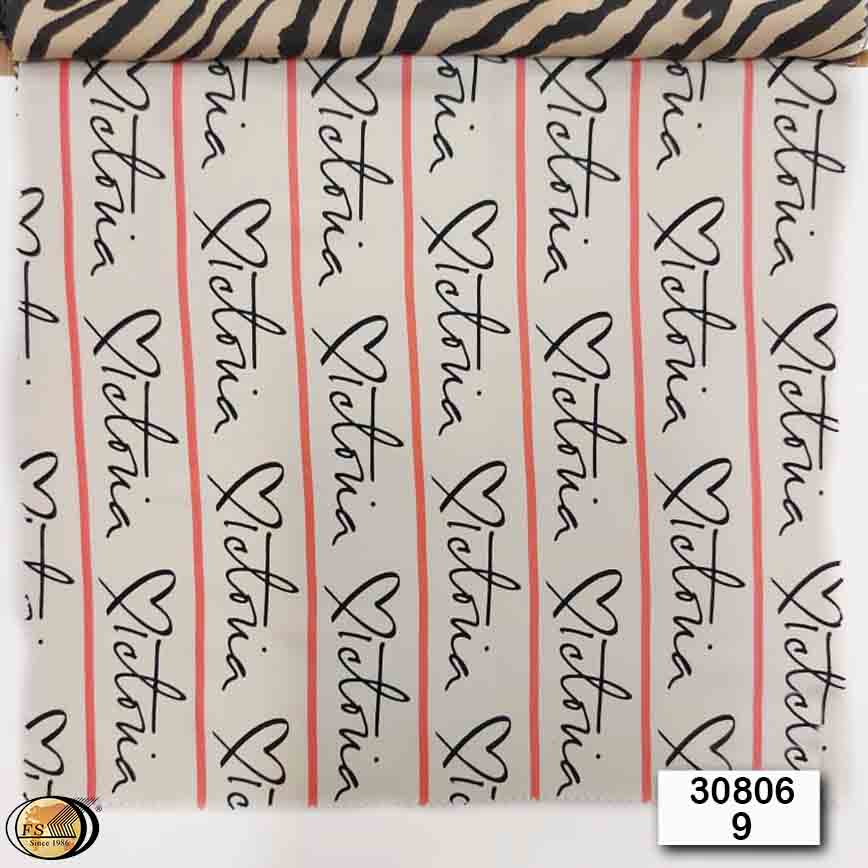 Victoria
oria
Victoria
oria
Victoria
oria
Victoria
Victoria
Victoria
Victoria
Victoria
Victoria
Victoria
Victoria
Victoria
Victoria
Victoria
Victoria
Victoria
Victoria
Vic
Vic
30806
9
FS
Since 1986
®